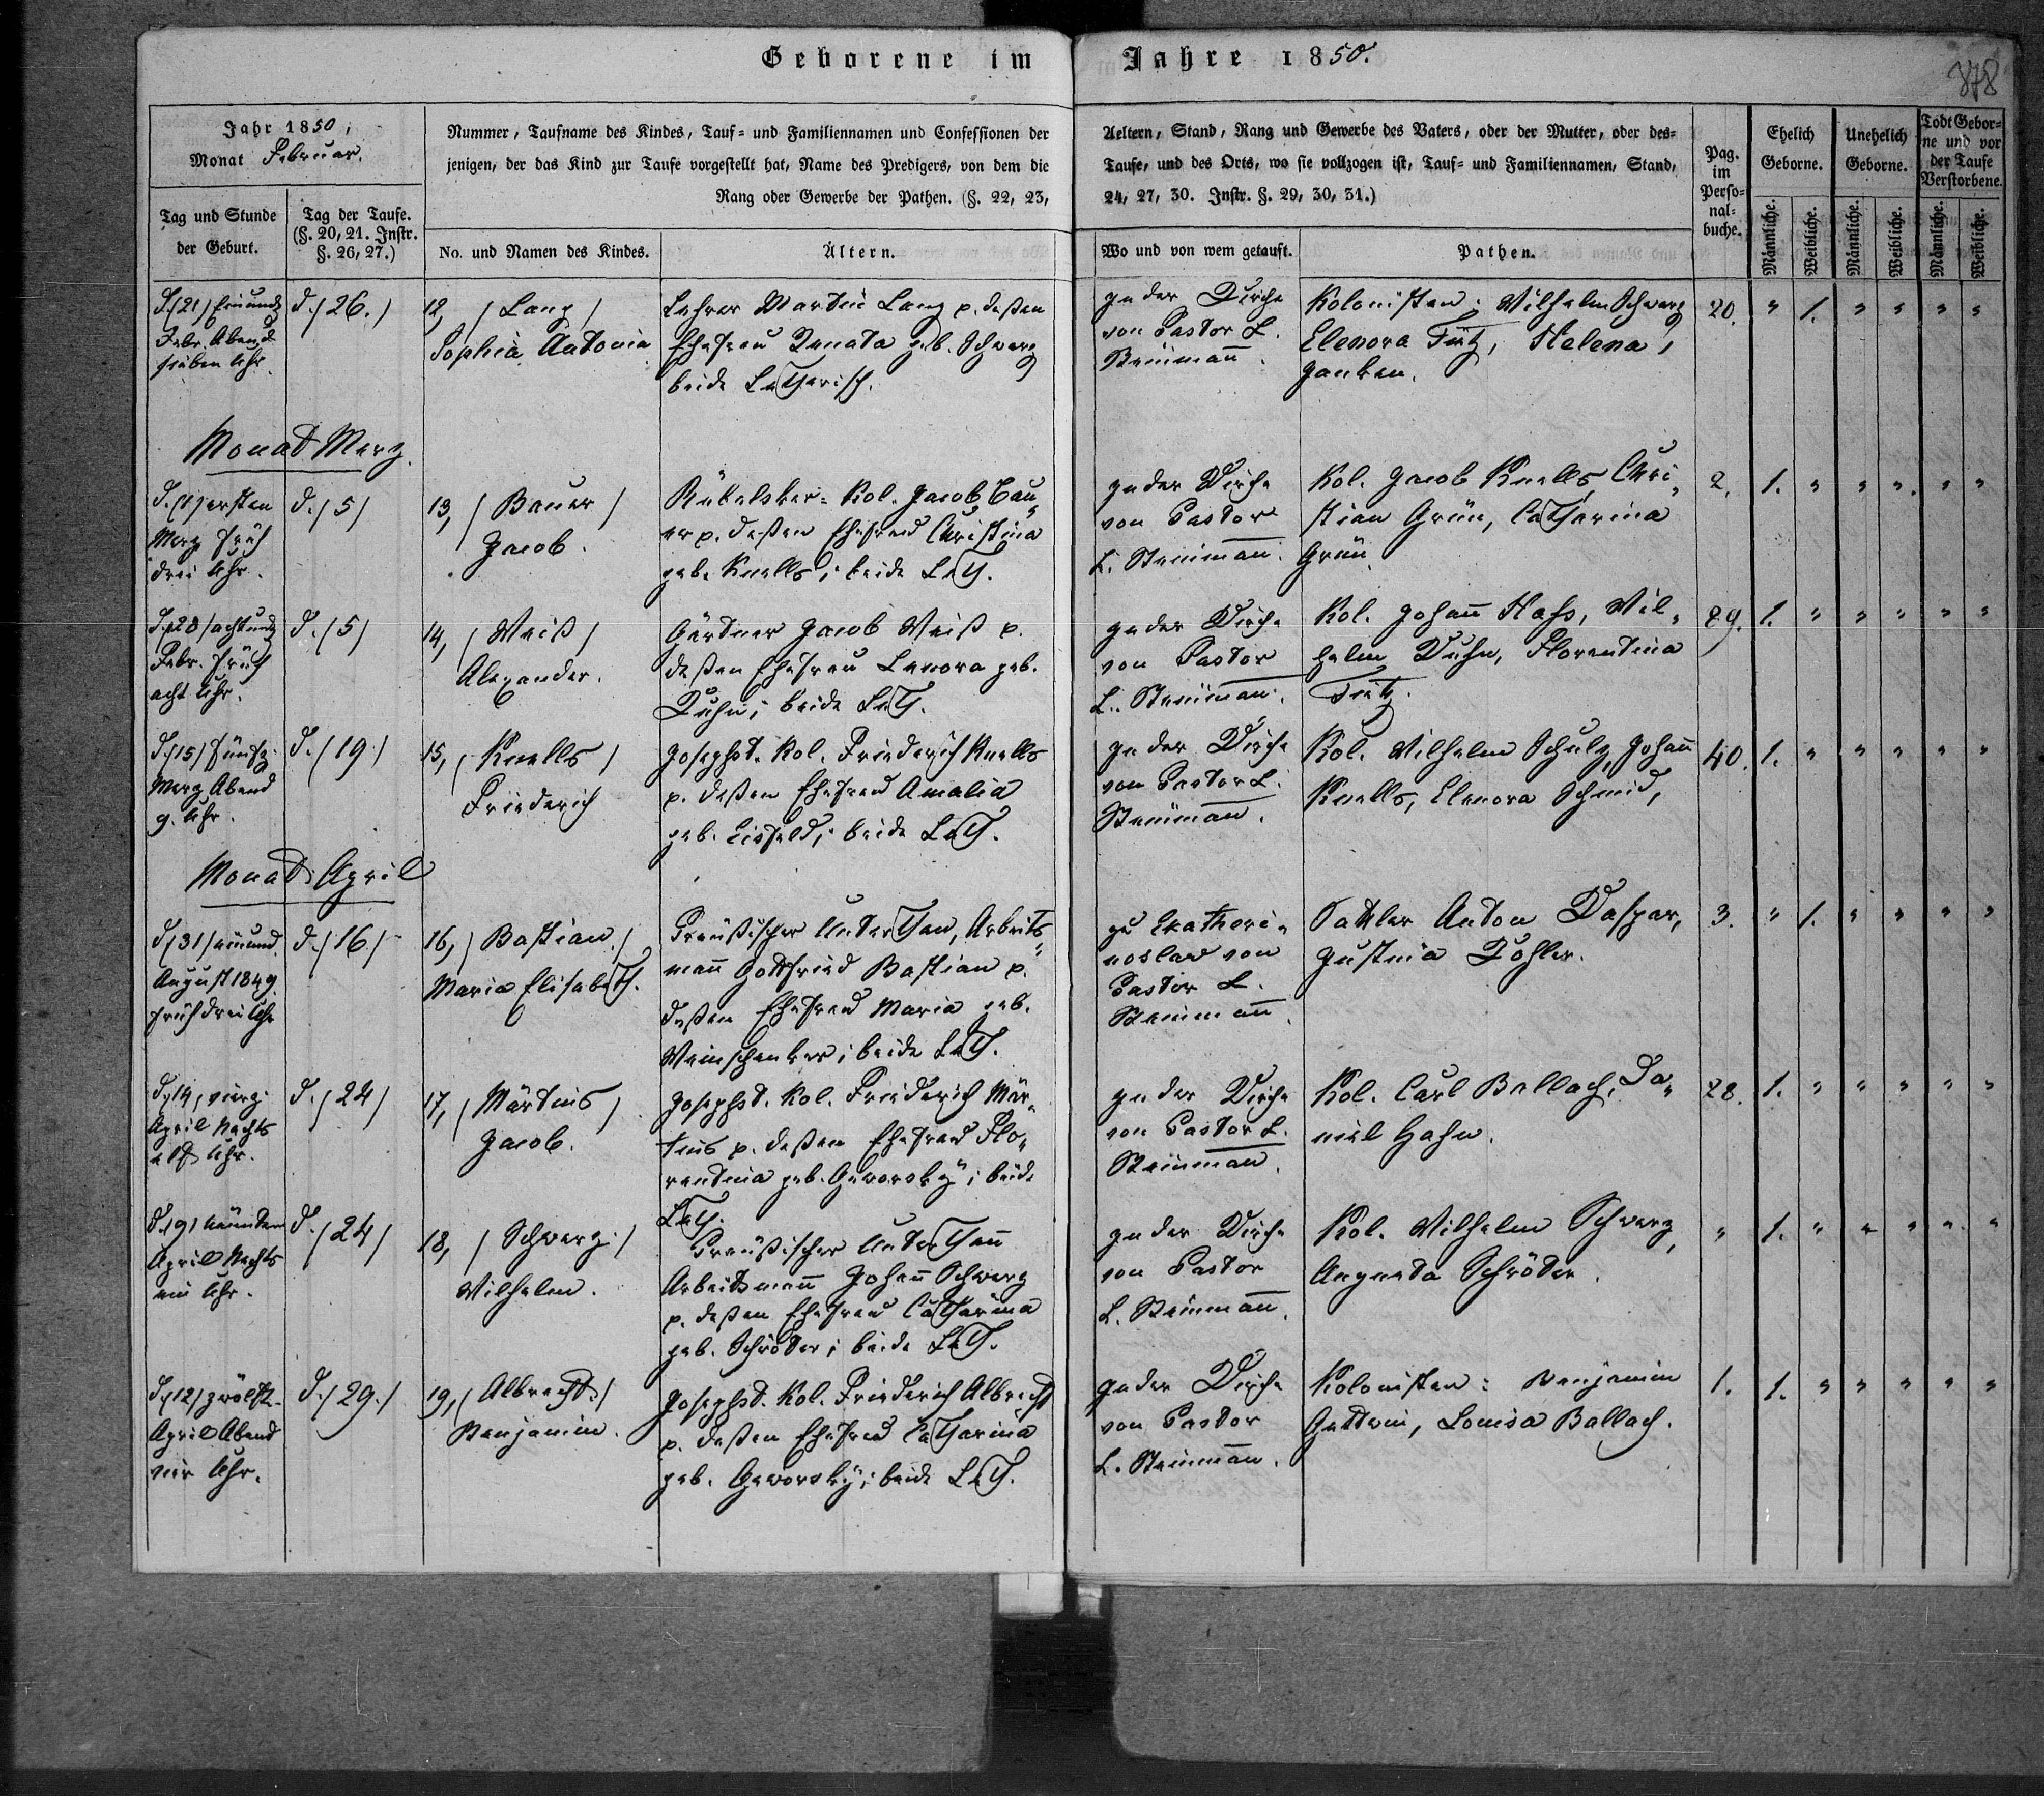 Geborene im Jahre 1850.
378
Jahr 1850,
Monat Februar.
Nummer, Taufname des Kindes, Tauf= und Familiennamen und Confessionen der Aeltern, Stand, Rang und Gewerbe des Vaters, oder der Mutter, oder des=
jenigen, der das Kind zur Taufe vorgestellt hat, Name des Predigers, von dem die Taufe, und des Orts, wo sie vollzogen ist, Tauf= und Familiennamen, Stand,
Rang oder Gewerbe der Pathen. (§. 22, 23, 24, 27, 30. Instr. §. 29, 30, 31.)
Pag.
im
Perso=
nal=
buche.
Ehelich
Geborne.
Unehelich
Geborne.
Todt Gebor=
ne und vor
der Taufe
Verstorbene.
Tag und Stunde
der Geburt.
Tag der Taufe.
(§. 20, 21. Instr.
§. 26, 27.)
No. und Namen des Kindes.
Ältern.
Wo und von wem getauft.
Pathen.
Männliche.
Weibliche.
Männliche.
Weibliche.
Männliche.
Weibliche.
D. (21) einund
Febr. Abend
sieben Uhr.
d. (26.)
12, (Lang)
Sophia Antonia
Lehrer Martin Lang p. deßen
Ehefrau Renata geb. Schwarz
beide Lutherisch.
In der Kirche
von Pastor L.
Steinmann.
Kolonisten: Wilhelm Schwarz
Elenora Fütz, Helena,
20. " 1. " " " "
Monat Merz.
D. (1) ersten
Merz früh
drei Uhr.
d. (5)
13, (Bauer)
Jacob.
Kol. Jacob Bau„
er p. deßen Ehefrau Christina
geb. Knells; beide Luth.
In der Kirche
von Pastor
L. Steinmann.
Kol. Jacob Knells, Chri„
stian Grün, Catharina
Grün.
2. 1. " " " " "
D. (28) achtund
Febr. früh
acht Uhr.
d. (5)
14, (Weiß)
Alexander.
Gärtner Jacob Weiß p.
deßen Ehefrau Lenora geb.
Kuhn; beide Luth.
In der Kirche
von Pastor
L. Steinmann.
Kol. Johann Hass, Wil„
helm Kuhn, Florentina
Fütz.
89. 1. " " " " "
D. (15) fünfz.
Merz Abend
9. Uhr.
d. (19)
15, (Knells)
Friederich
Josephst. Kol. Friederich Knells
p. deßen Ehefrau Amalia
geb. Eisfeld; beide Luth.
In der Kirche
von Pastor L.
Steinmann.
Kol. Wilhelm Schulz, Johann
Knells, Elenora Schmid,
40. 1. " " " " "
Monat April
D. (31) einund.
August 1849.
früh drei Uhr
d. (16)
16, (Bastian.)
Maria Elisabeth.
Preußischer Unterthan, Arbeits„
mann Gottfried Bastian p.
deßen Ehefrau Maria geb.
Weinschenker; beide Luth.
zu Ekatheri„
noslaw von
Pastor L.
Steinmann.
Sattler Anton Kaspar,
Justina Köhler.
3. " 1. " " " "
D. (14) vierz.
April Nachts
elf Uhr.
d. (24)
17, (Märtins)
Jacob.
Josephst. Kol. Friederich Mär„
tins p. deßen Ehefrau Flo„
rentina geb. Gaworsky; beide
Luth.
In der Kirche
von Pastor L.
Steinmann.
Kol. Carl Ballach, Da„
niel Hahn.
28. 1. " " " " "
D. (9) neunten
April Nachts
ein Uhr.
d. (24)
18, (Schwarz)
Wilhelm.
Preußischer Unterthan
Arbeitsmann Johann Schwarz
p. deßen Ehefrau Catharina
geb. Schröder; beide Luth.
In der Kirche
von Pastor
L. Steinmann.
Kol. Wilhelm Schwarz,
Augusta Schröder.
" 1. " " " " "
D. (12) zwölft.
April Abend
vier Uhr.
d. (29.)
19, (Albrecht.)
Benjamin.
Josephst. Kol. Friederich Albrecht
p. deßen Ehefrau Catharina
geb. Gaworsky; beide Luth.
In der Kirche
von Pastor
L. Steinmann.
Kolonisten: Benjamin
Louisa Ballach.
1. 1. " " " " "